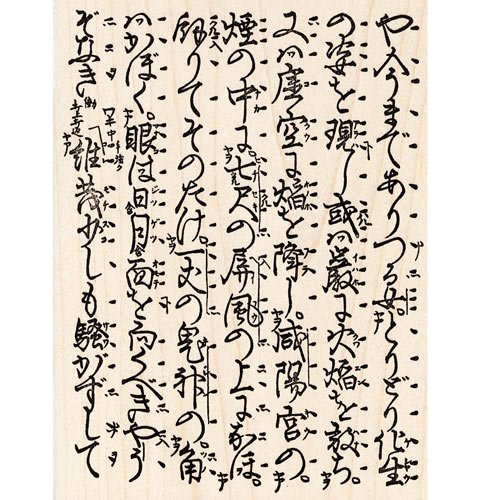 や今までありつる女。とりどり化生
の姿を現し或は巌に火焔を放ち。
又は虚空に焔を降し。咸陽宮の。
煙の中に。七尺の屏風の上になほ。
餘りてそのたけ。一丈の鬼神の。角
はかぼく。眼は日月面を向くべきやう
ぞなき 維茂少しも騒がずして